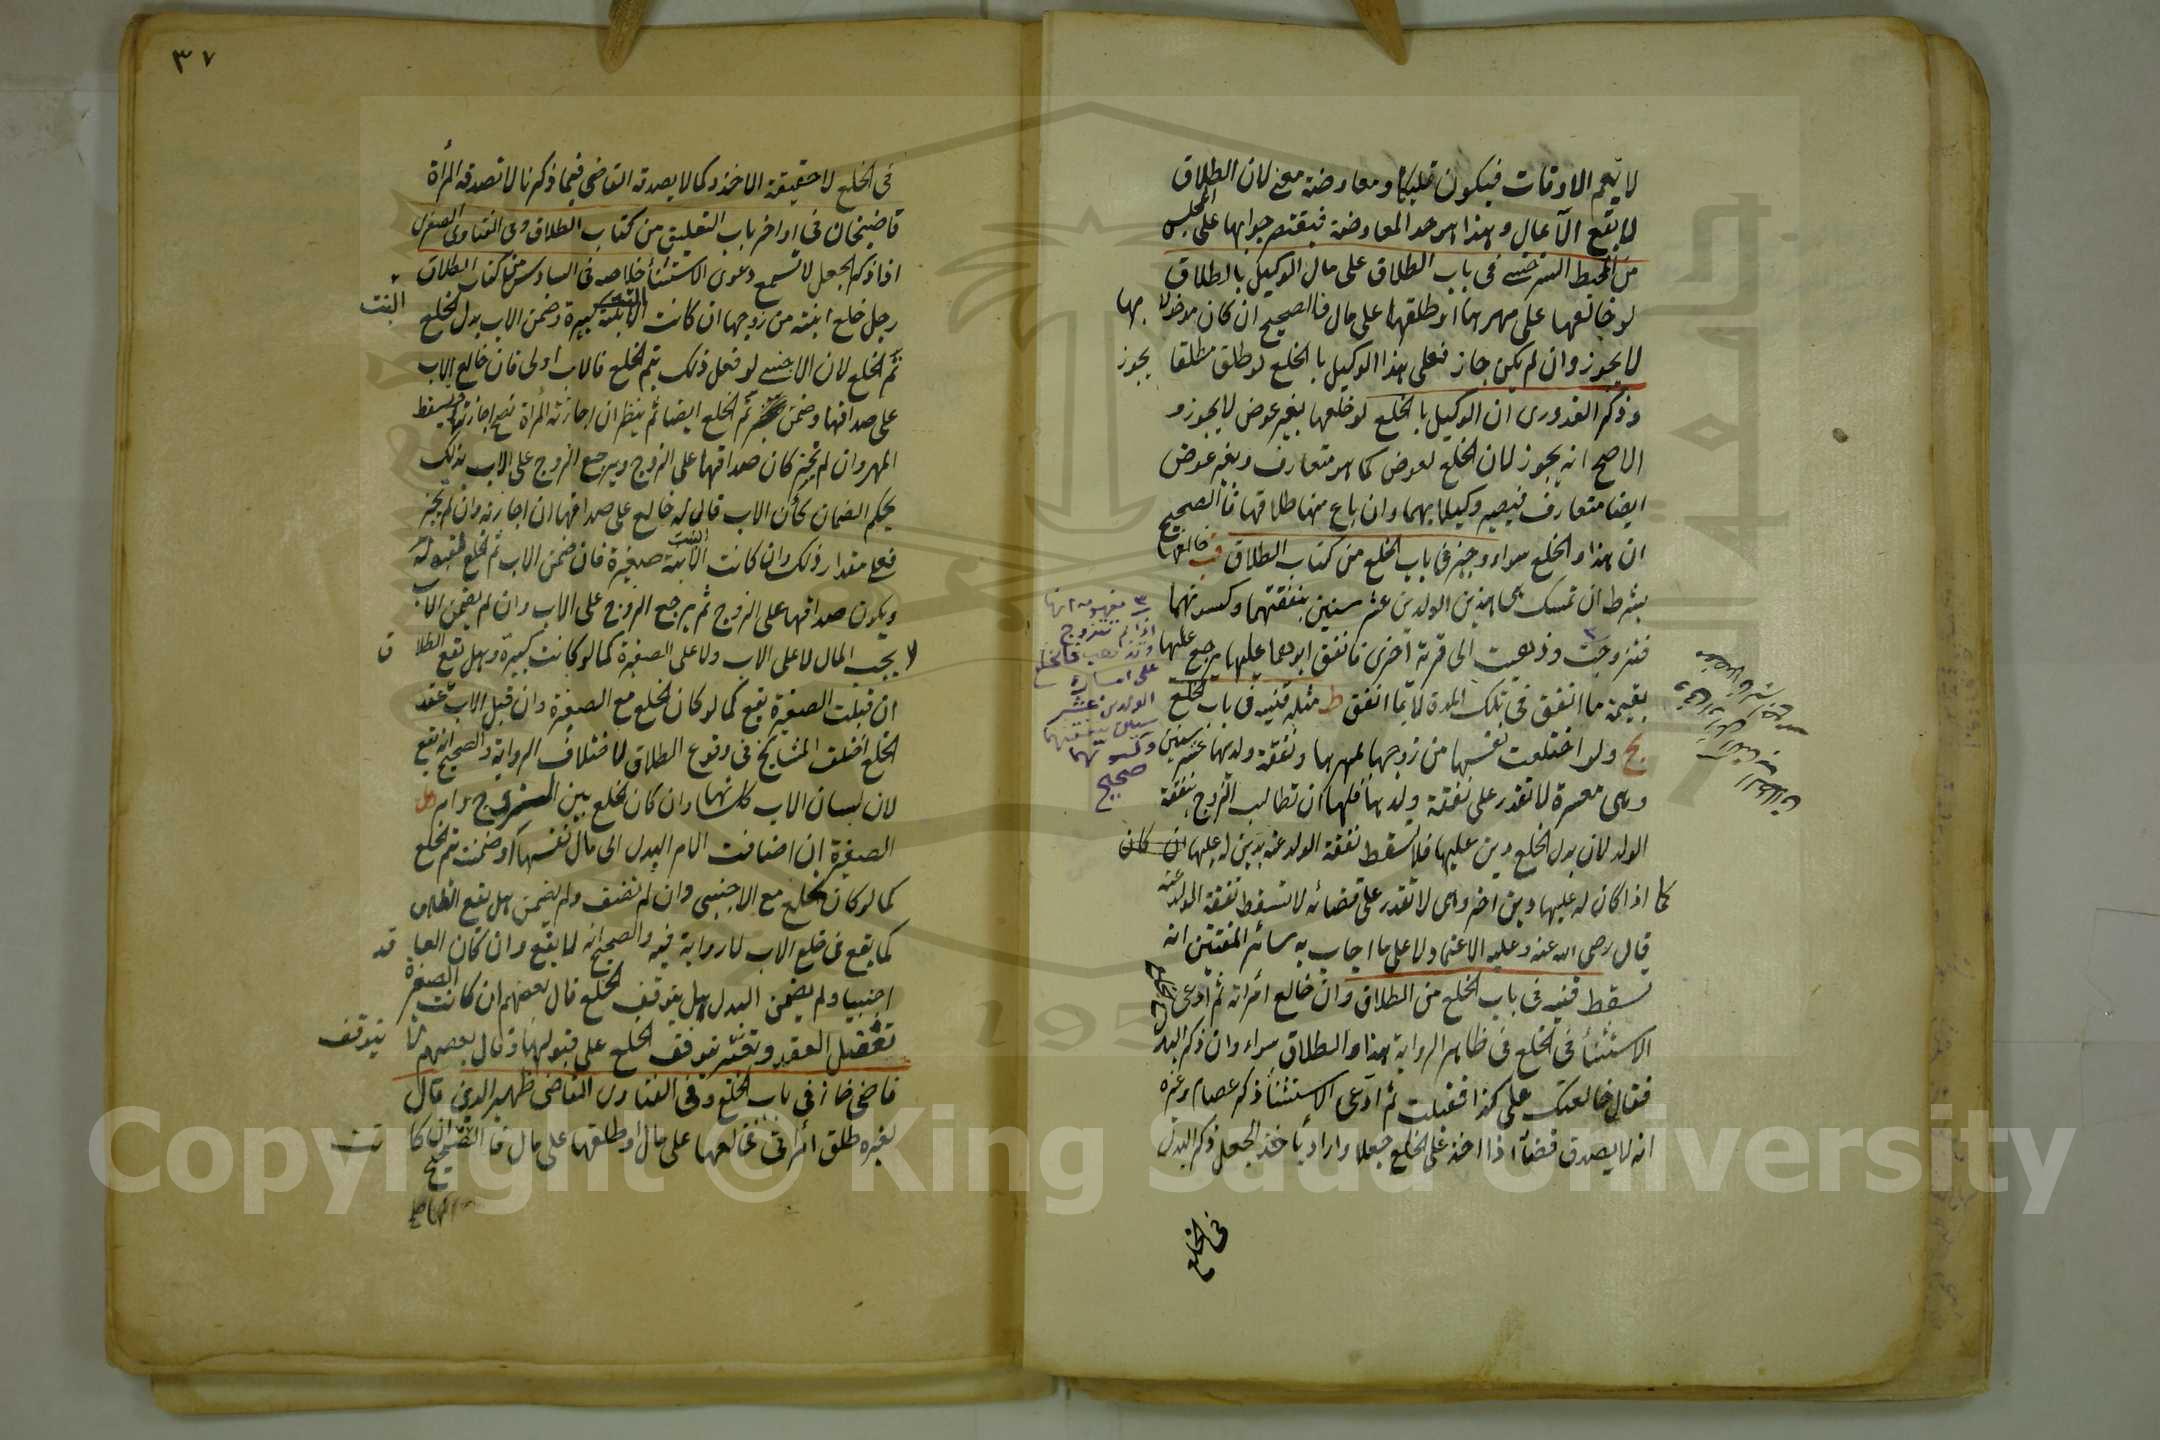 لا يعم الاوقات فيكون تمليكا ومعاوضة معنى لان الطلاق
لا يقع الا بمال وهذا هو حد المعاوضة فيقتصر جوابها على المجلس
من المحيط السرخسي في باب الطلاق على مال الوكيل بالطلاق
لو خالعها على مهرها او طلقها على مال فالصحيح ان كان مدخولا بها
لا يجوز وان لم يكن جاز فعلى هذا الوكيل بالخلع لو طلق مطلقا يجوز
وذكر القدوري ان الوكيل بالخلع لو خلعها بغير عوض لا يجوز و
الاصح انه يجوز لان الخلع بعوض كما هو متعارف وبغير عوض
ايضا متعارف فيصير وكيلا بهما وان باع منها طلاقها فالصحيح
ان هذا والخلع سواء وجيز في باب الخلع من كتاب الطلاق خالعها
بشرط ان تمسك هي هذين الولدين عشر سنين بنفقتهما وكسوتهما
فتزوجت وذهبت الى قرية اخرى فانفق ابوهما عليهما يرجع عليها
بقيمة ما انفق في تلك المدة لا بما انفق ط مثله قنيه في باب الخلع
بخ ولو اختلعت نفسها من زوجها بمهرها ونفقة ولدها عشر سنين
وهي معسرة لا تقدر على نفقة ولدها فلها ان تطالب الزوج بنفقة
الولد لان بدل الخلع دين عليها فلا تسقط نفقة الولد عنه بدين له عليها ان كان
كما اذا كان له عليها دين اخر وهي لا تقدر على قضائه لا تسقط نفقة الولد عنه
قال رضي الله عنه وعليه الاعتماد لا على ما اجاب به سائر المفتين انه
تسقط قنيه في باب الخلع من الطلاق وان خالع امراته ثم ادعى
الاستثناء في الخلع في ظاهر الرواية هذا والطلاق سواء وان ذكر البدل
فقال خالعتك على كذا فقبلت ثم ادعى الاستثناء ذكر عصام وغيره
انه لا يصدق قضاء اذا اخذ على الخلع جعلا واراد باخذ الجعل ذكر البدل
في الخلع
٣ مفهومه انها
اذا لم تتزوج
ولم تذهب فالخلع
على امساك
الولدين عشر
سنين بنفقتهما
وكسوتهما
صحيح
٣٧
في الخلع لا حقيقة الاخذ وكما لا يصدقه القاضي فيما ذكرنا لا تصدقه المرأة
قاضيخان في اواخر باب التعليق من كتاب الطلاق وفي الفتاوى الصغرى
اذا ذكر الجعل لا تسمع دعوى الاستثناء خلاصه في السادس من كتاب الطلاق
رجل خلع ابنته من زوجها ان كانت البنت كبيرة وضمن الاب بدل الخلع
تم الخلع لان الاجنبي لو فعل ذلك يتم الخلع فالاب اولى فان خالع الاب
على صداقها وضمن تم الخلع ايضا ثم ينظر ان اجازته المرأة تصح اجازتها ويسقط
المهر وان لم تجز كان صداقها على الزوج ويرجع الزوج على الاب بذلك
بحكم الضمان كأن الاب قال له خالع على صداقها ان اجازته وان لم تجز
فعلي مقدار ذلك وان كانت البنت صغيرة فان ضمن الاب تم الخلع بقبوله
ويكون صداقها على الزوج ثم يرجع الزوج على الاب وان لم يضمن الاب
لا يجب المال لا على الاب ولا على الصغيرة كما لو كانت كبيرة وهل يقع الطلاق
ان قبلت الصغيرة يقع كما لو كان الخلع مع الصغيرة وان قبل الاب عقد
الخلع اختلف المشايخ في وقوع الطلاق لاختلاف الرواية والصحيح انه يقع
لان لسان الاب كلسانها وان كان الخلع بين الزوج وام
الصغيرة ان اضافت الام البدل الى مال نفسها او ضمنت يتم الخلع
كما لو كان الخلع مع الاجنبي وان لم تضف ولم تضمن هل يقع الطلاق
كما يقع في خلع الاب لا رواية فيه والصحيح انه لا يقع وان كان العاقد
اجنبيا ولم يضمن البدل هل يتوقف الخلع قال بعضهم ان كانت الصغيرة
تعقل العقد وتعبر يتوقف الخلع على قبولها وقال بعضهم لا يتوقف
قاضي خان في باب الخلع وفي الفتاوى القاضي ظهير الدين قال
لغيره طلق امرأتي فخالعها على مال او طلقها على مال فالصحيح ان كانت
Copyright © King Saud University
1957